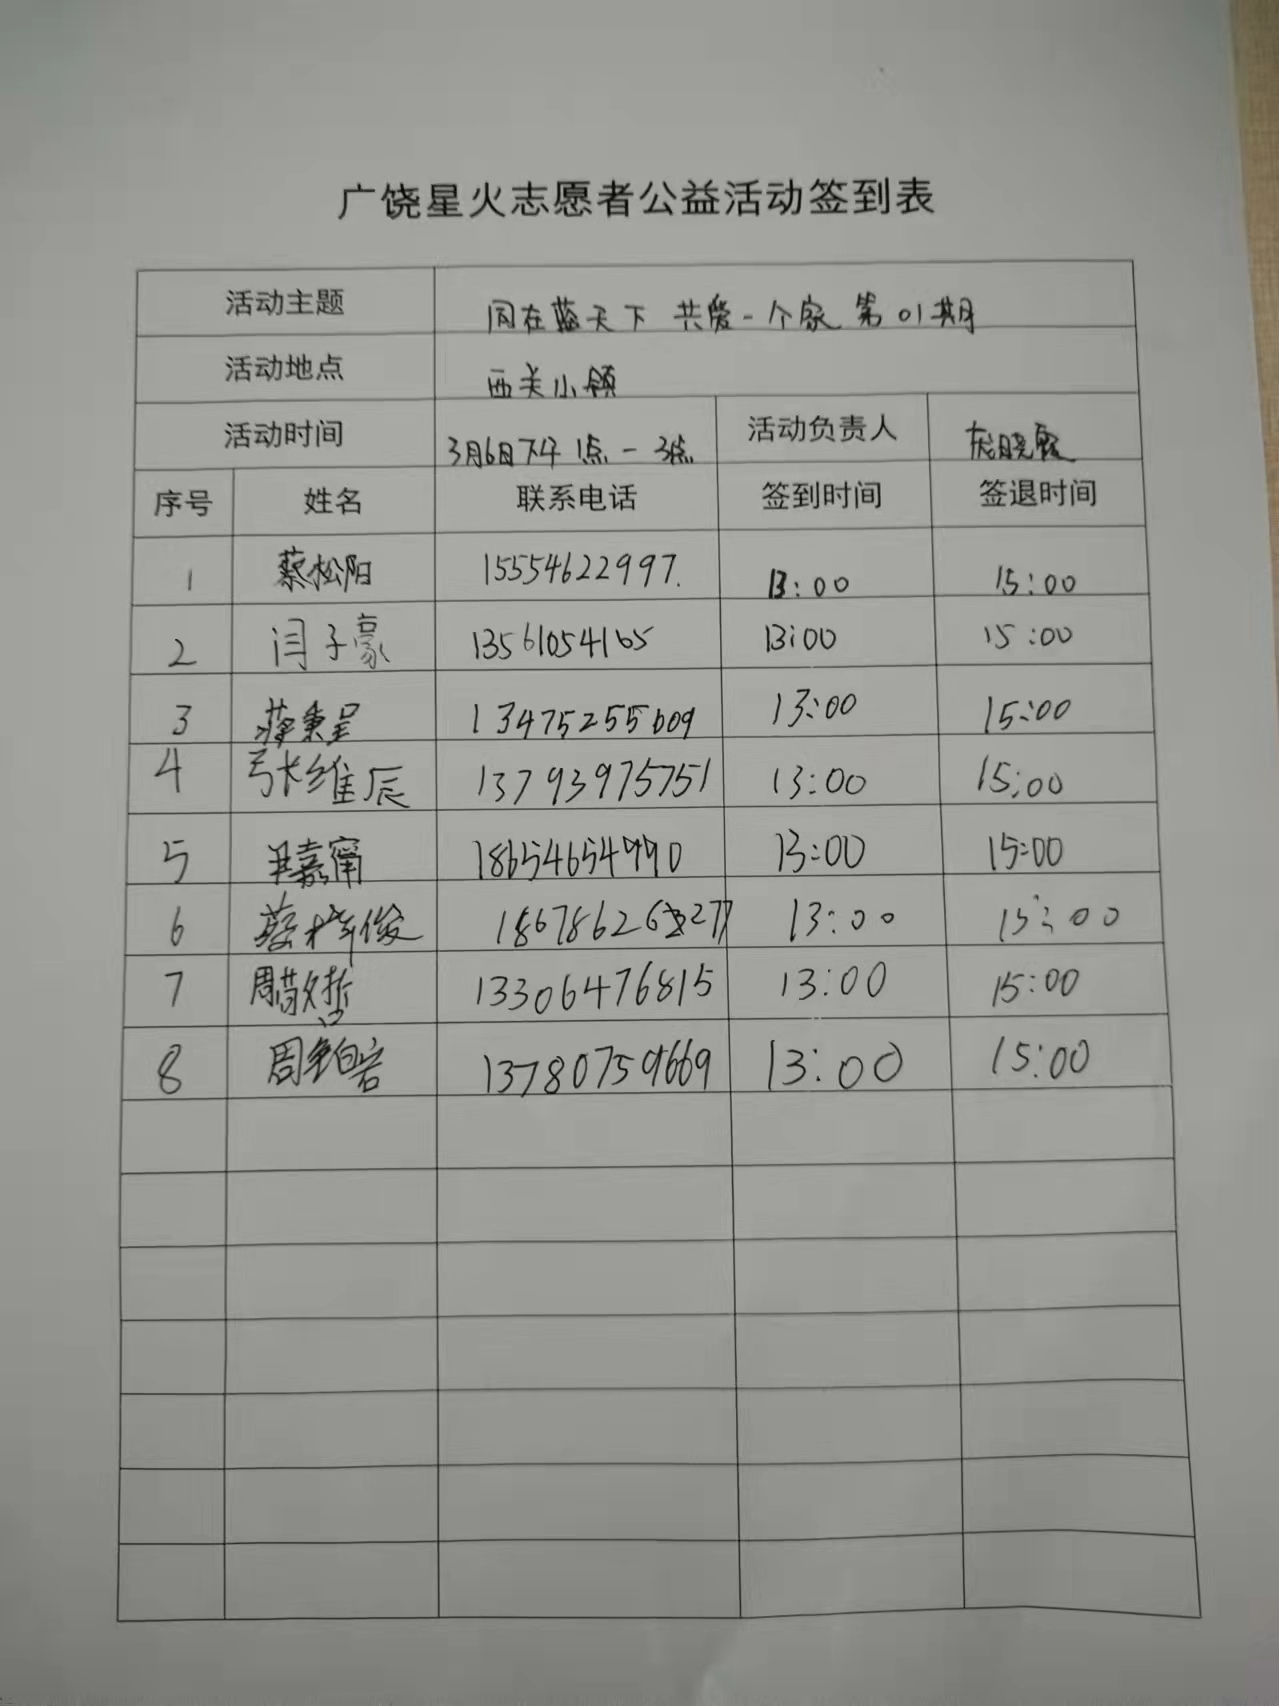 广饶星火志愿者公益活动签到表
活动主题 同在蓝天下 共爱一个家 第01期
活动地点 西关小镇
活动时间 3月6日下午 1点-3点 活动负责人 晓霞
序号 姓名 联系电话 签到时间 签退时间
1 蔡松阳 15554622997. 13:00 15:00
2 闫子豪 13561054165 13:00 15:00
3 蒋秉呈 13475255609 13:00 15:00
4 张维辰 13793975751 13:00 15:00
5 尹嘉甯 18654654990 13:00 15:00
6 蔡梓俊 13:00 15:00
7 周敬哲 13306476815 13:00 15:00
8 周 13780759669 13:00 15:00